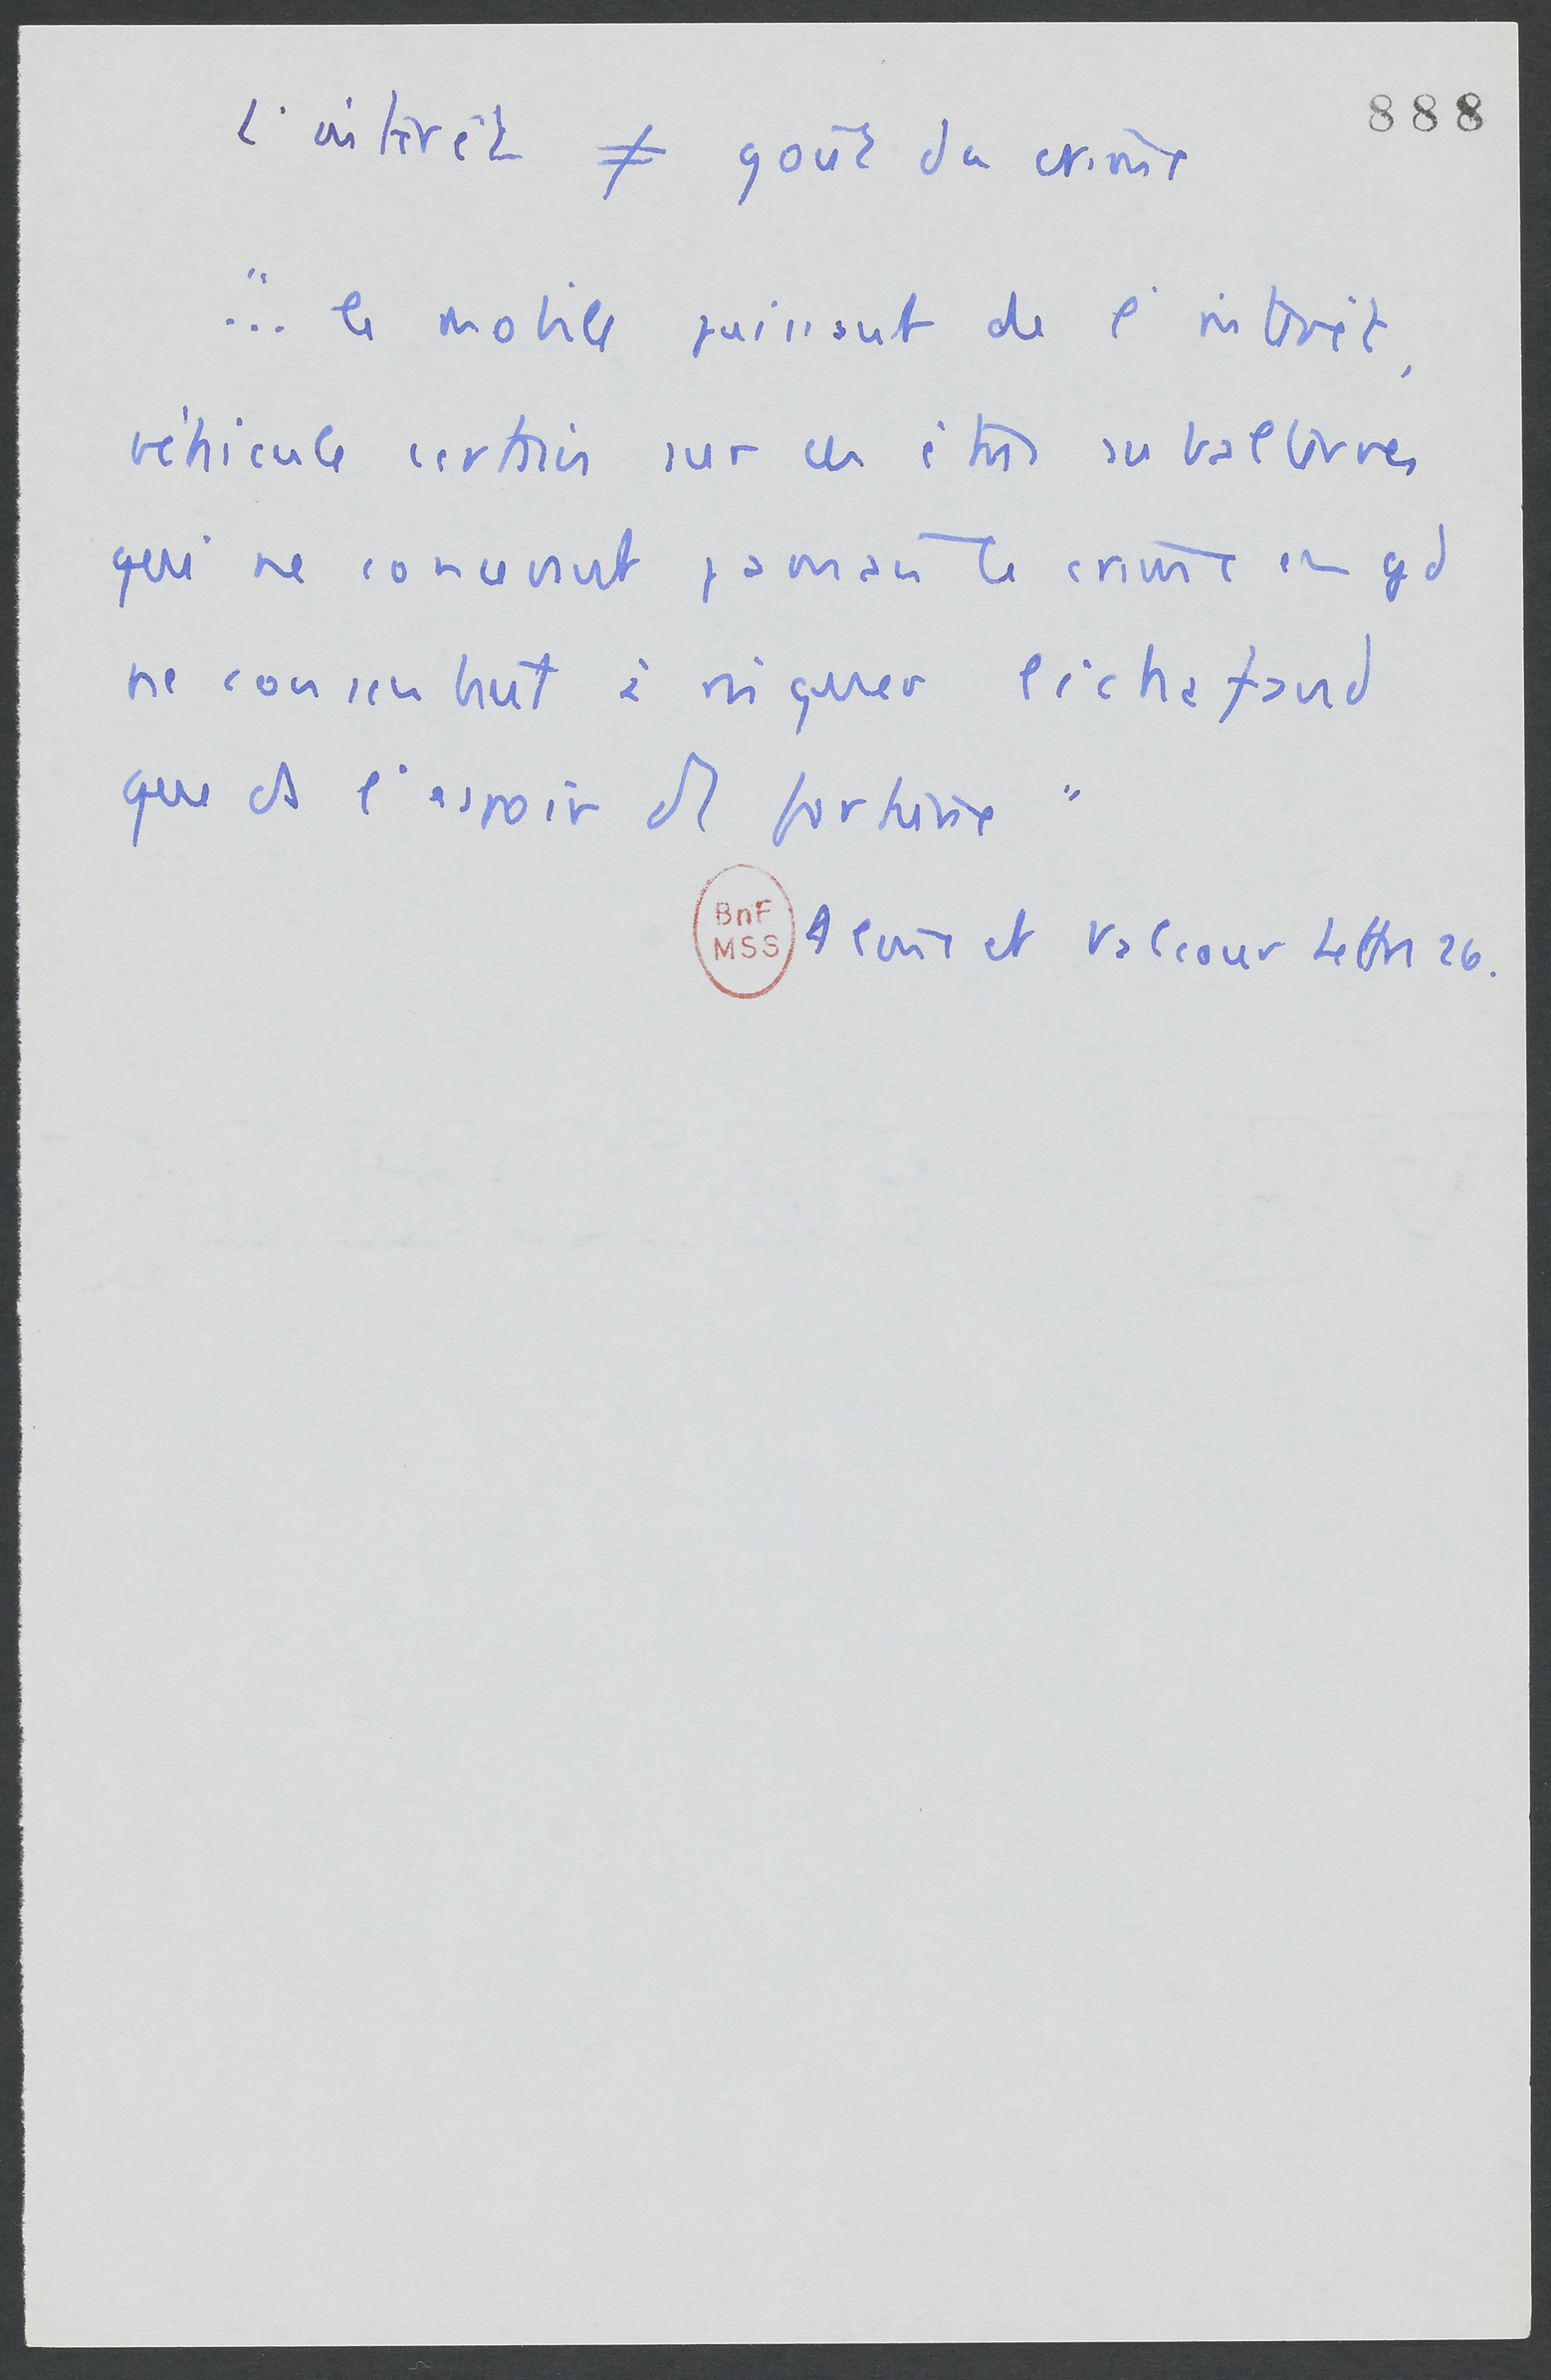 888
L'intérêt ≠ goût du crime
"... le mobile puissant de l'intérêt,
véhicule certain sur ces êtres subalternes
qui ne concevant jamais le crime en gd
ne consentent à risquer l'échafaud
que ds l'espoir de fortune"
BnF
MSS
Aline et Valcour Lettre 26.